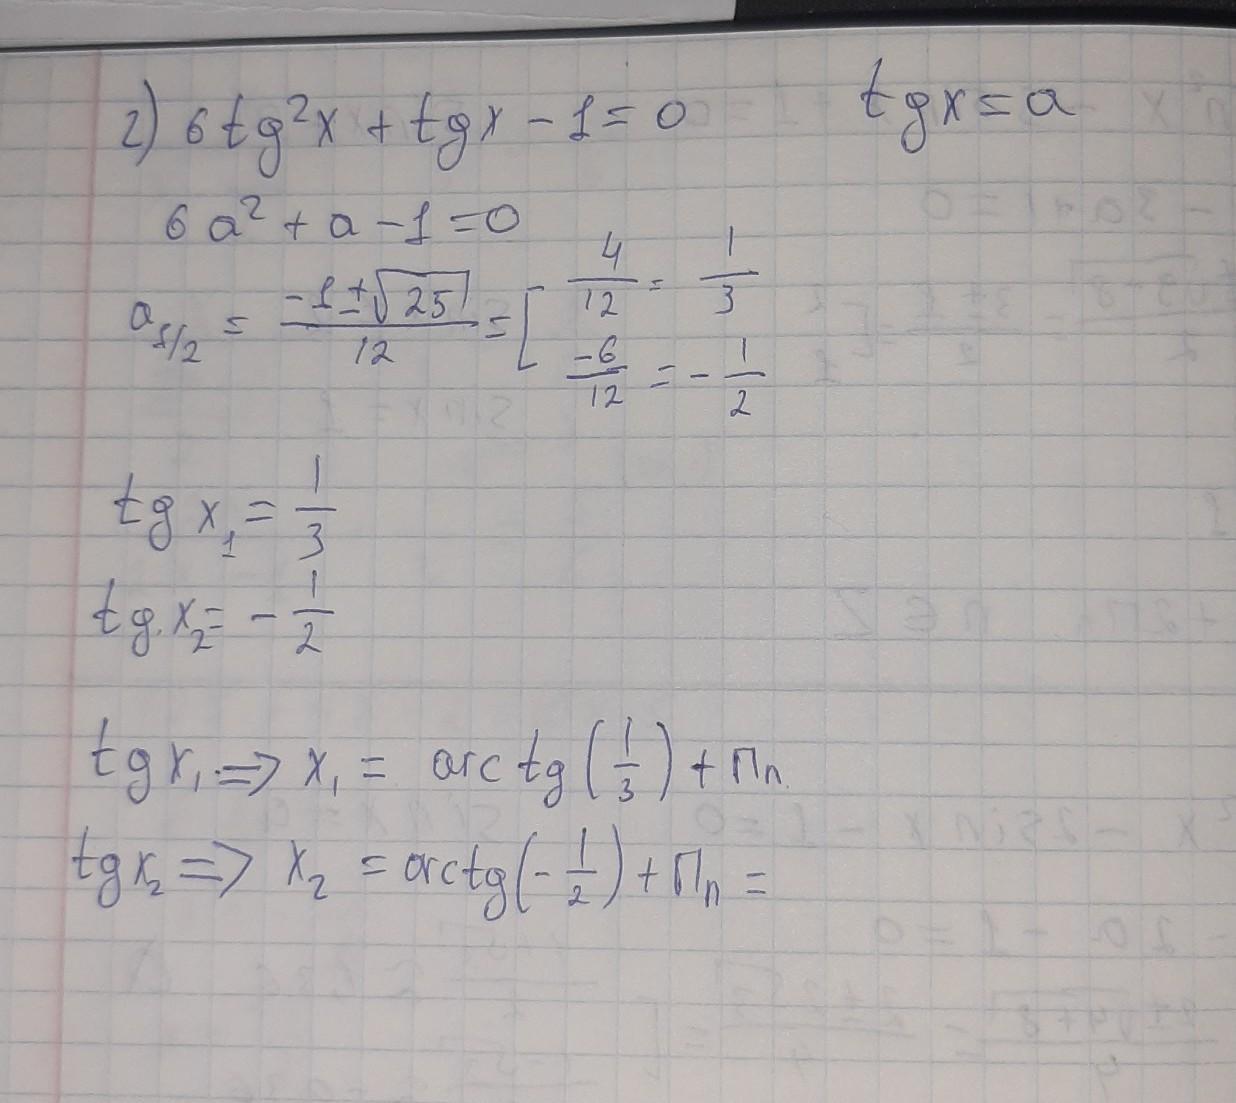 2) 6tg²x + tgx - 1 = 0 tgx = a
6a² + a - 1 = 0
a₁/₂ = (-1 ± √25)/12 = [ 4/12 = 1/3
-6/12 = - 1/2
tg x₁ = 1/3
tg x₂ = - 1/2
tg x₁ => x₁ = arctg(1/3) + Πn
tg x₂ => x₂ = arctg(- 1/2) + Πn =